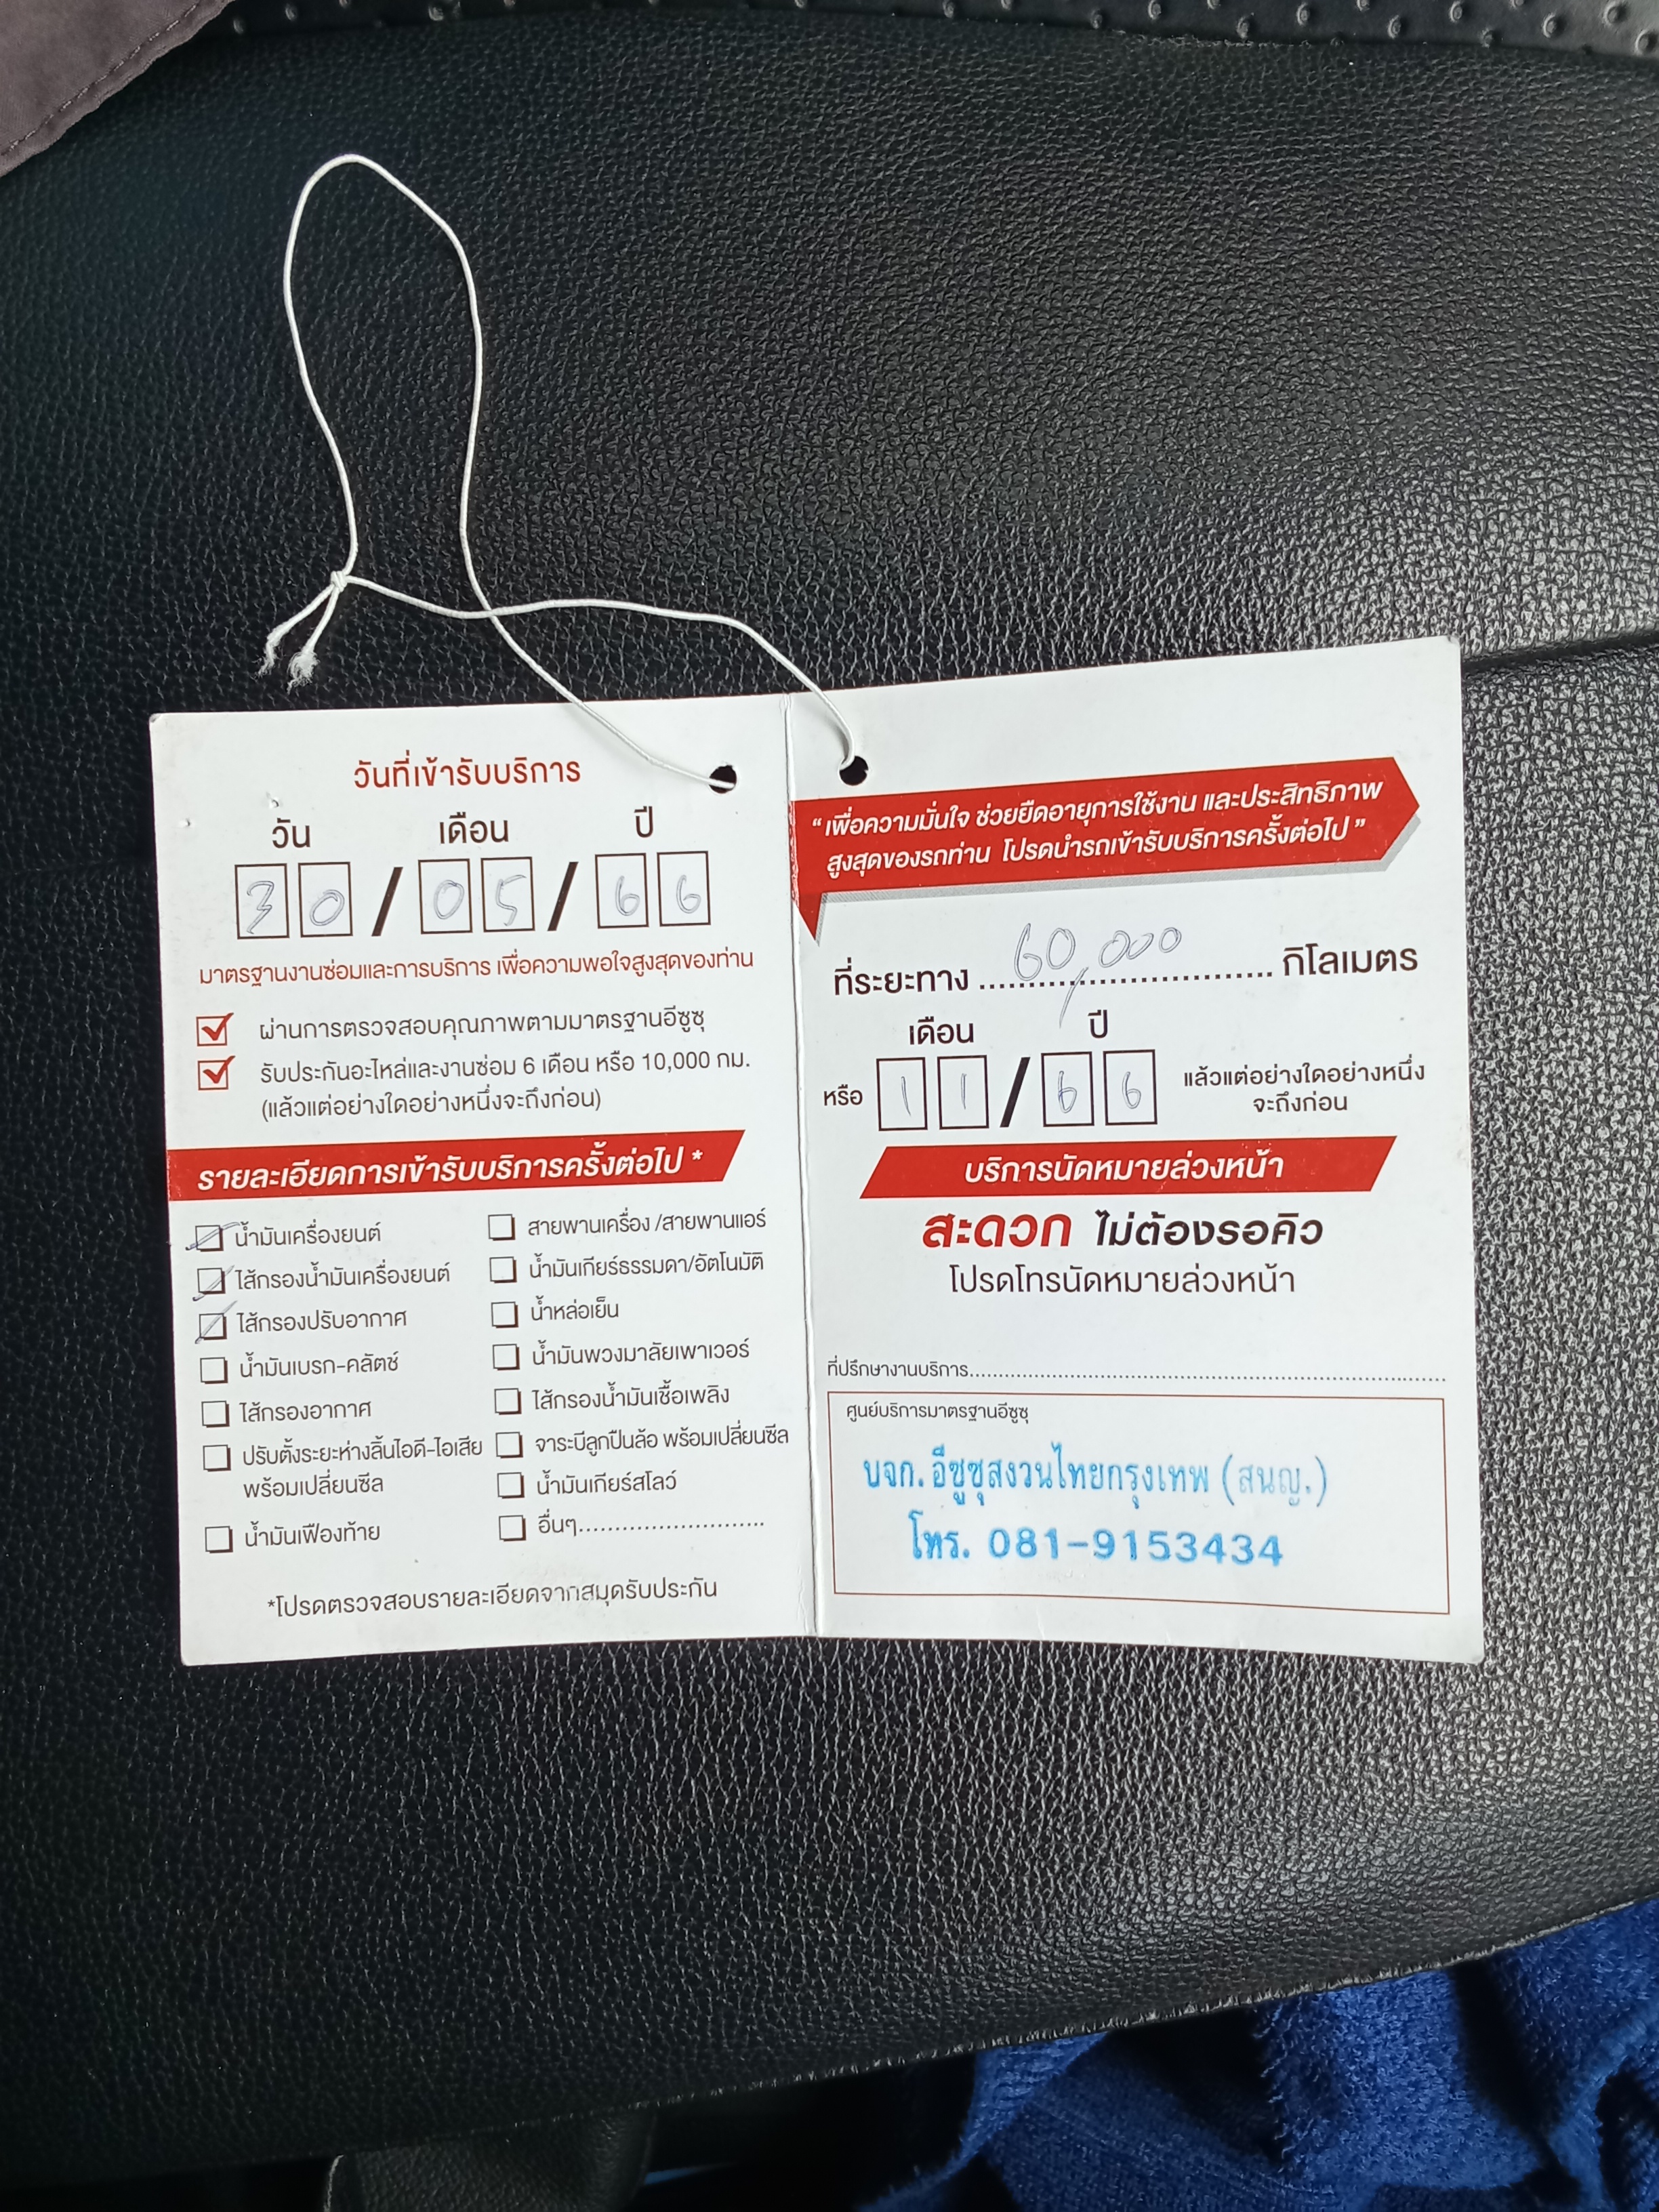 วันที่เข้ารับบริการ
วัน เดือน ปี
30/05/66
มาตรฐานงานซ่อมและการบริการ เพื่อความพอใจสูงสุดของท่าน
ผ่านการตรวจสอบคุณภาพตามมาตรฐานอีซูซุ
รับประกันอะไหล่และงานซ่อม 6 เดือน หรือ 10,000 กม.
(แล้วแต่อย่างใดอย่างหนึ่งจะถึงก่อน)
รายละเอียดการเข้ารับบริการครั้งต่อไป *
น้ำมันเครื่องยนต์
ไส้กรองน้ำมันเครื่องยนต์
ไส้กรองปรับอากาศ
น้ำมันเบรก-คลัตช์
ไส้กรองอากาศ
ปรับตั้งระยะห่างลิ้นไอดี-ไอเสีย
พร้อมเปลี่ยนซีล
น้ำมันเฟืองท้าย
สายพานเครื่อง /สายพานแอร์
น้ำมันเกียร์ธรรมดา/อัตโนมัติ
น้ำหล่อเย็น
น้ำมันพวงมาลัยเพาเวอร์
ไส้กรองน้ำมันเชื้อเพลิง
จาระบีลูกปืนล้อ พร้อมเปลี่ยนซีล
น้ำมันเกียร์สโลว์
อื่นๆ..........................
*โปรดตรวจสอบรายละเอียดจากสมุดรับประกัน
“ เพื่อความมั่นใจ ช่วยยืดอายุการใช้งาน และประสิทธิภาพ
สูงสุดของรถท่าน โปรดนำรถเข้ารับบริการครั้งต่อไป ”
ที่ระยะทาง 60,000 กิโลเมตร
เดือน ปี
หรือ 11/66 แล้วแต่อย่างใดอย่างหนึ่ง
จะถึงก่อน
บริการนัดหมายล่วงหน้า
สะดวก ไม่ต้องรอคิว
โปรดโทรนัดหมายล่วงหน้า
ที่ปรึกษางานบริการ..........................
ศูนย์บริการมาตรฐานอีซูซุ
บจก. อีซูซุสงวนไทยกรุงเทพ (สนญ.)
โทร. 081-9153434